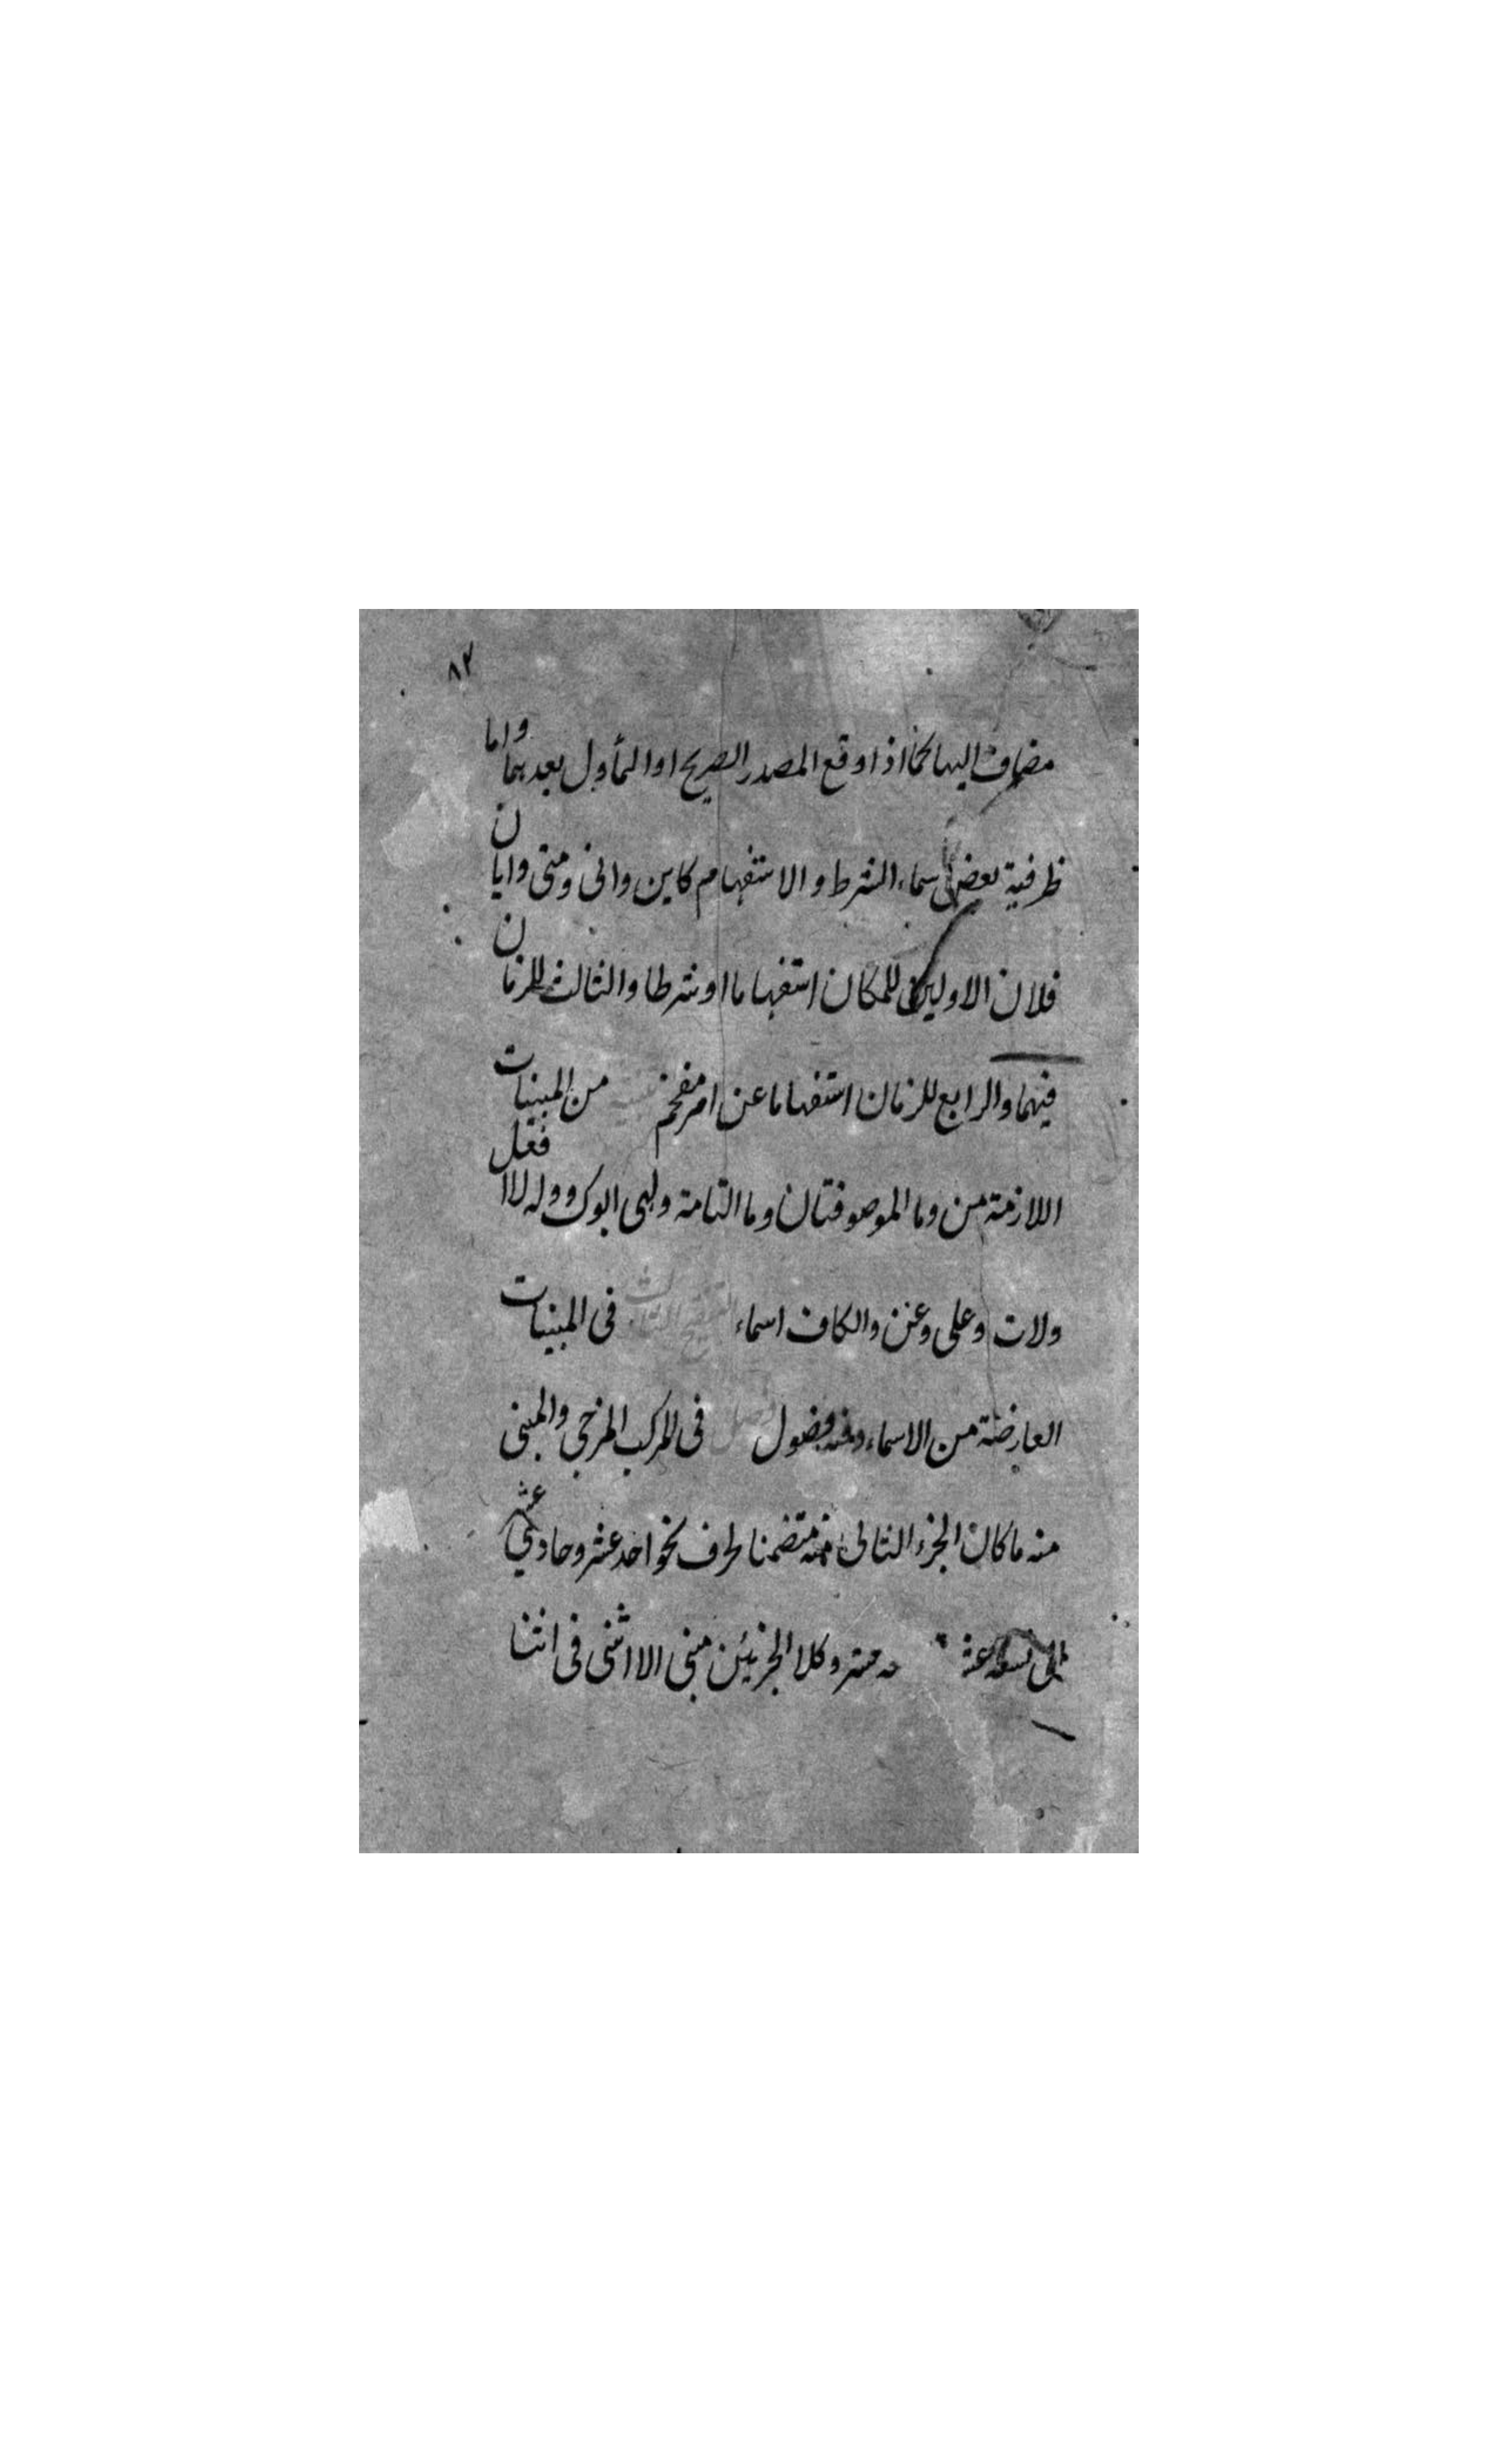 ٨٢
مضاف اليها كما اذا وقع المصدر الصريح او المأول بعدهما واما
ظرفية بعض اسماء الشرط والاستفهام كاين وانى ومتى وايان
فلان الاوليين للمكان استفهاما او شرطا والثالث للزمان
فيهما والرابع للزمان استفهاما عن امر مفخم من المبينات
اللازمة من وما الموصوفتان وما التامة ولهى ابوك ووله لاافعل
ولات وعلى وعن والكاف اسماء التوضيح الثالث فى المبينات
العارضة من الاسماء وفيه فصول فصل فى المركب المزجى والمبنى
منه ما كان الجزء الثانى منه متضمنا لحرف نحو احد عشر وحادى عشر
الى تسعة عشر وكلا الجزئين مبنى الا اثنى فى اثنا